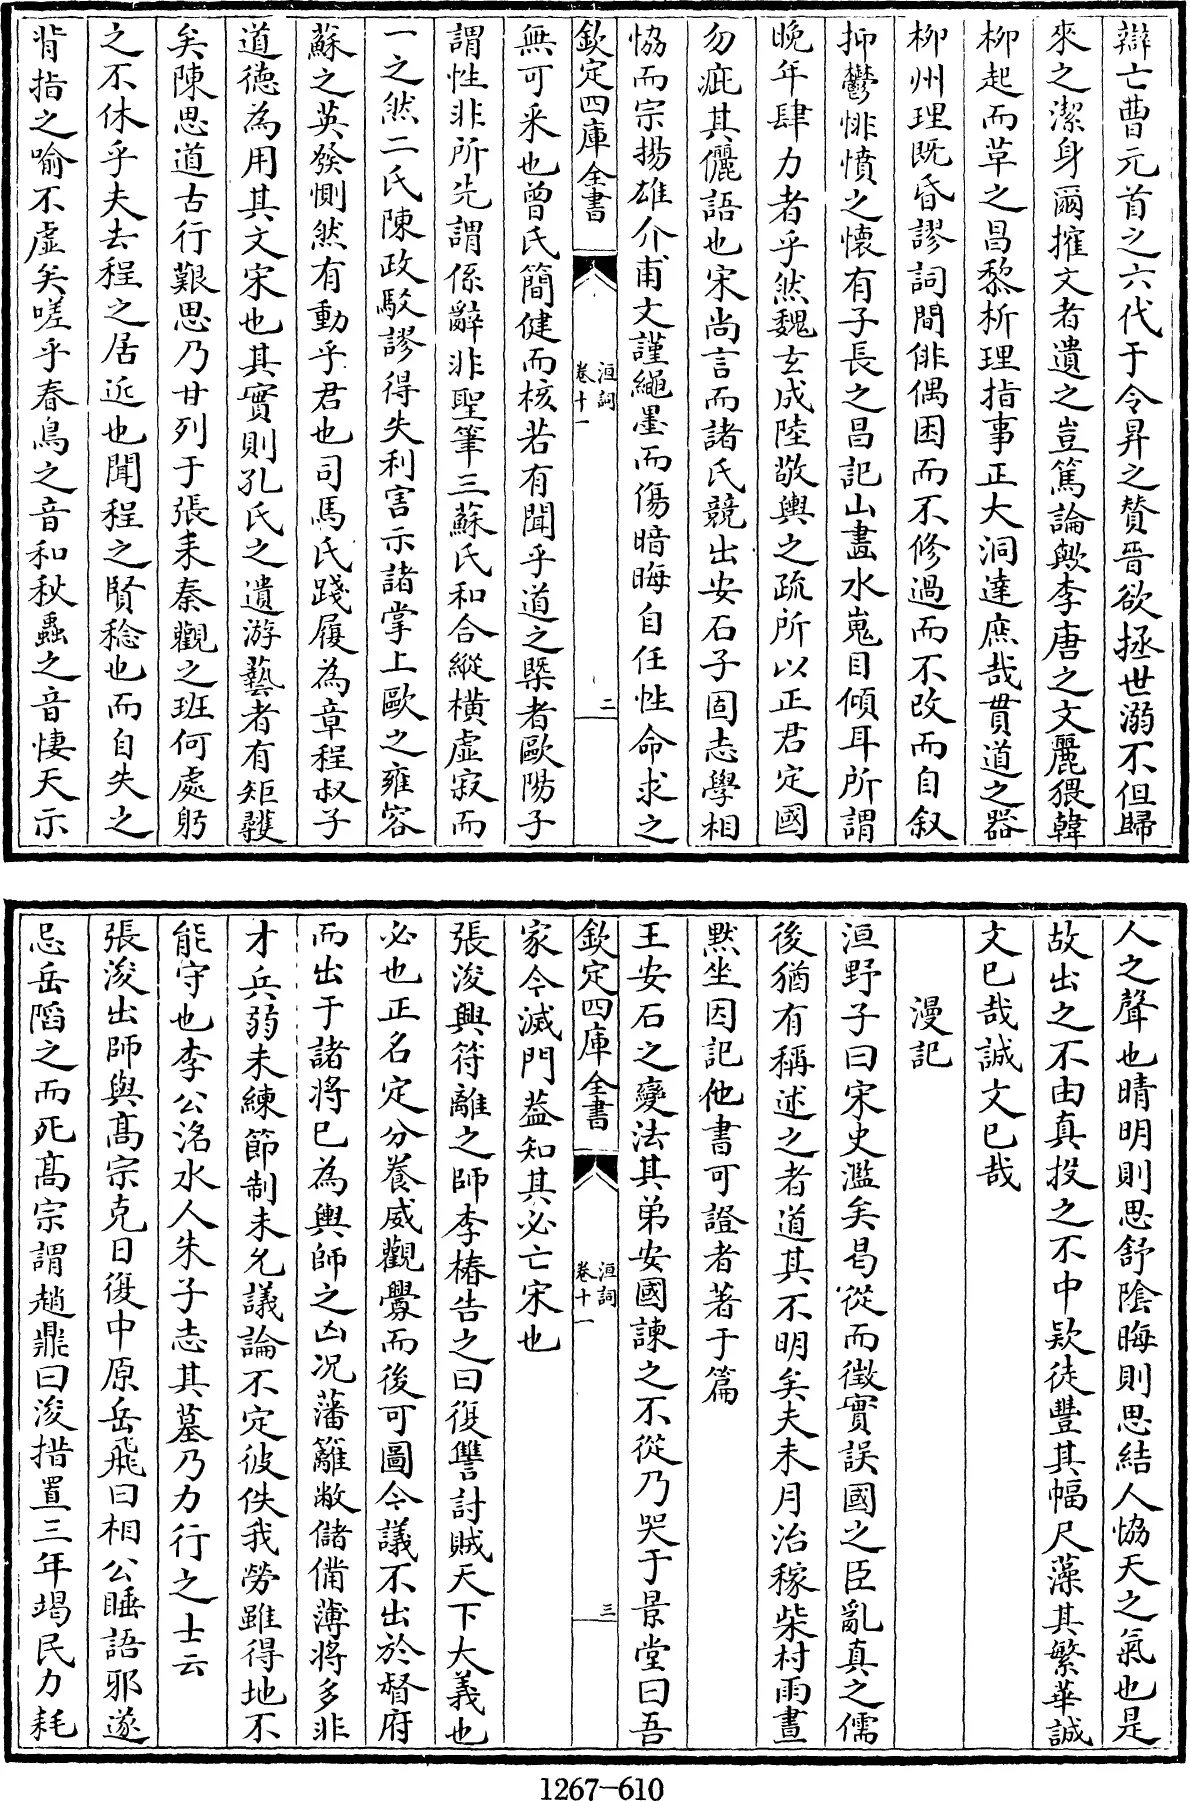 辯亡曹元首之六代于令昇之贊晋欲拯世溺不但歸
來之潔身爾搉文者遺之豈篤論歟李唐之文麗猥韓
柳起而草之昌黎析理指事正大洞達庶哉貫道之器
柳州理既昏謬詞間俳偶困而不修過而不改而自叙
抑鬱悱憤之懷有子長之昌記山畫水嵬目傾耳所謂
晚年肆力者乎然魏玄成陸敬輿之疏所以正君定國
勿疵其儷語也宋尚言而諸氏競出安石子固志學相
恊而宗揚雄介甫文謹繩墨而傷暗晦自任性命求之
欽定四庫全書
洹詞
卷十一
二
無可采也曾氏簡健而核若有聞乎道之槩者歐陽子
謂性非所先謂係辭非聖筆三蘇氏和合縱横虛寂而
一之然二氏陳政駁謬得失利害示諸掌上歐之雍容
蘇之英發惻然有動乎君也司馬氏踐履為章程叔子
道德為用其文宋也其實則孔氏之遺游藝者有矩矱
矣陳思道古行艱思乃甘列于張耒秦觀之班何處躬
之不休乎夫去程之居近也聞程之賢稔也而自失之
背指之喻不虛矣嗟乎春鳥之音和秋蟲之音悽天示
人之聲也晴明則思舒陰晦則思結人恊天之氣也是
故出之不由真投之不中欵徒豐其幅尺藻其繁華誠
文已哉誠文已哉
漫記
洹野子曰宋史濫矣曷從而徵實誤國之臣亂真之儒
後猶有稱述之者道其不明矣夫未月治稼柴村雨晝
默坐因記他書可證者著于篇
王安石之變法其弟安國諫之不從乃哭于景堂曰吾
欽定四庫全書
洹詞
卷十一
三
家今滅門葢知其必亡宋也
張浚興符離之師李椿告之曰復讐討賊天下大義也
必也正名定分養威觀釁而後可圖今議不出於督府
而出于諸将已為輿師之凶况藩籬敝儲備薄将多非
才兵弱未練節制未允議論不定彼佚我勞雖得地不
能守也李公洺水人朱子志其墓乃力行之士云
張浚出師與髙宗克日復中原岳飛曰相公睡語邪遂
忌岳䧟之而死髙宗謂趙鼎曰浚措置三年竭民力耗
1267-610